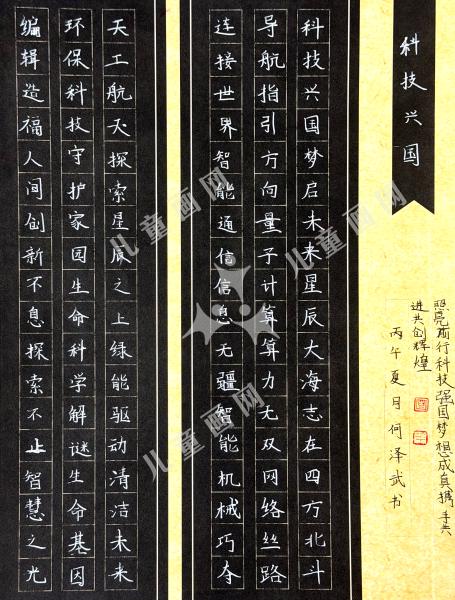 科技兴国
科技兴国梦启未来星辰大海志在四方北斗
导航指引方向量子计算算力无双网络丝路
连接世界智能通信信息无疆智能机械巧夺
天工航天探索星辰之上绿能驱动清洁未来
环保科技守护家园生命科学解谜生命基因
编辑造福人间创新不息探索不止智慧之光
照亮前行科技强国梦想成真携手共
进共创辉煌
丙午夏月何泽武书
儿童画网
儿童画网
儿童画网
儿童画网
儿童画网